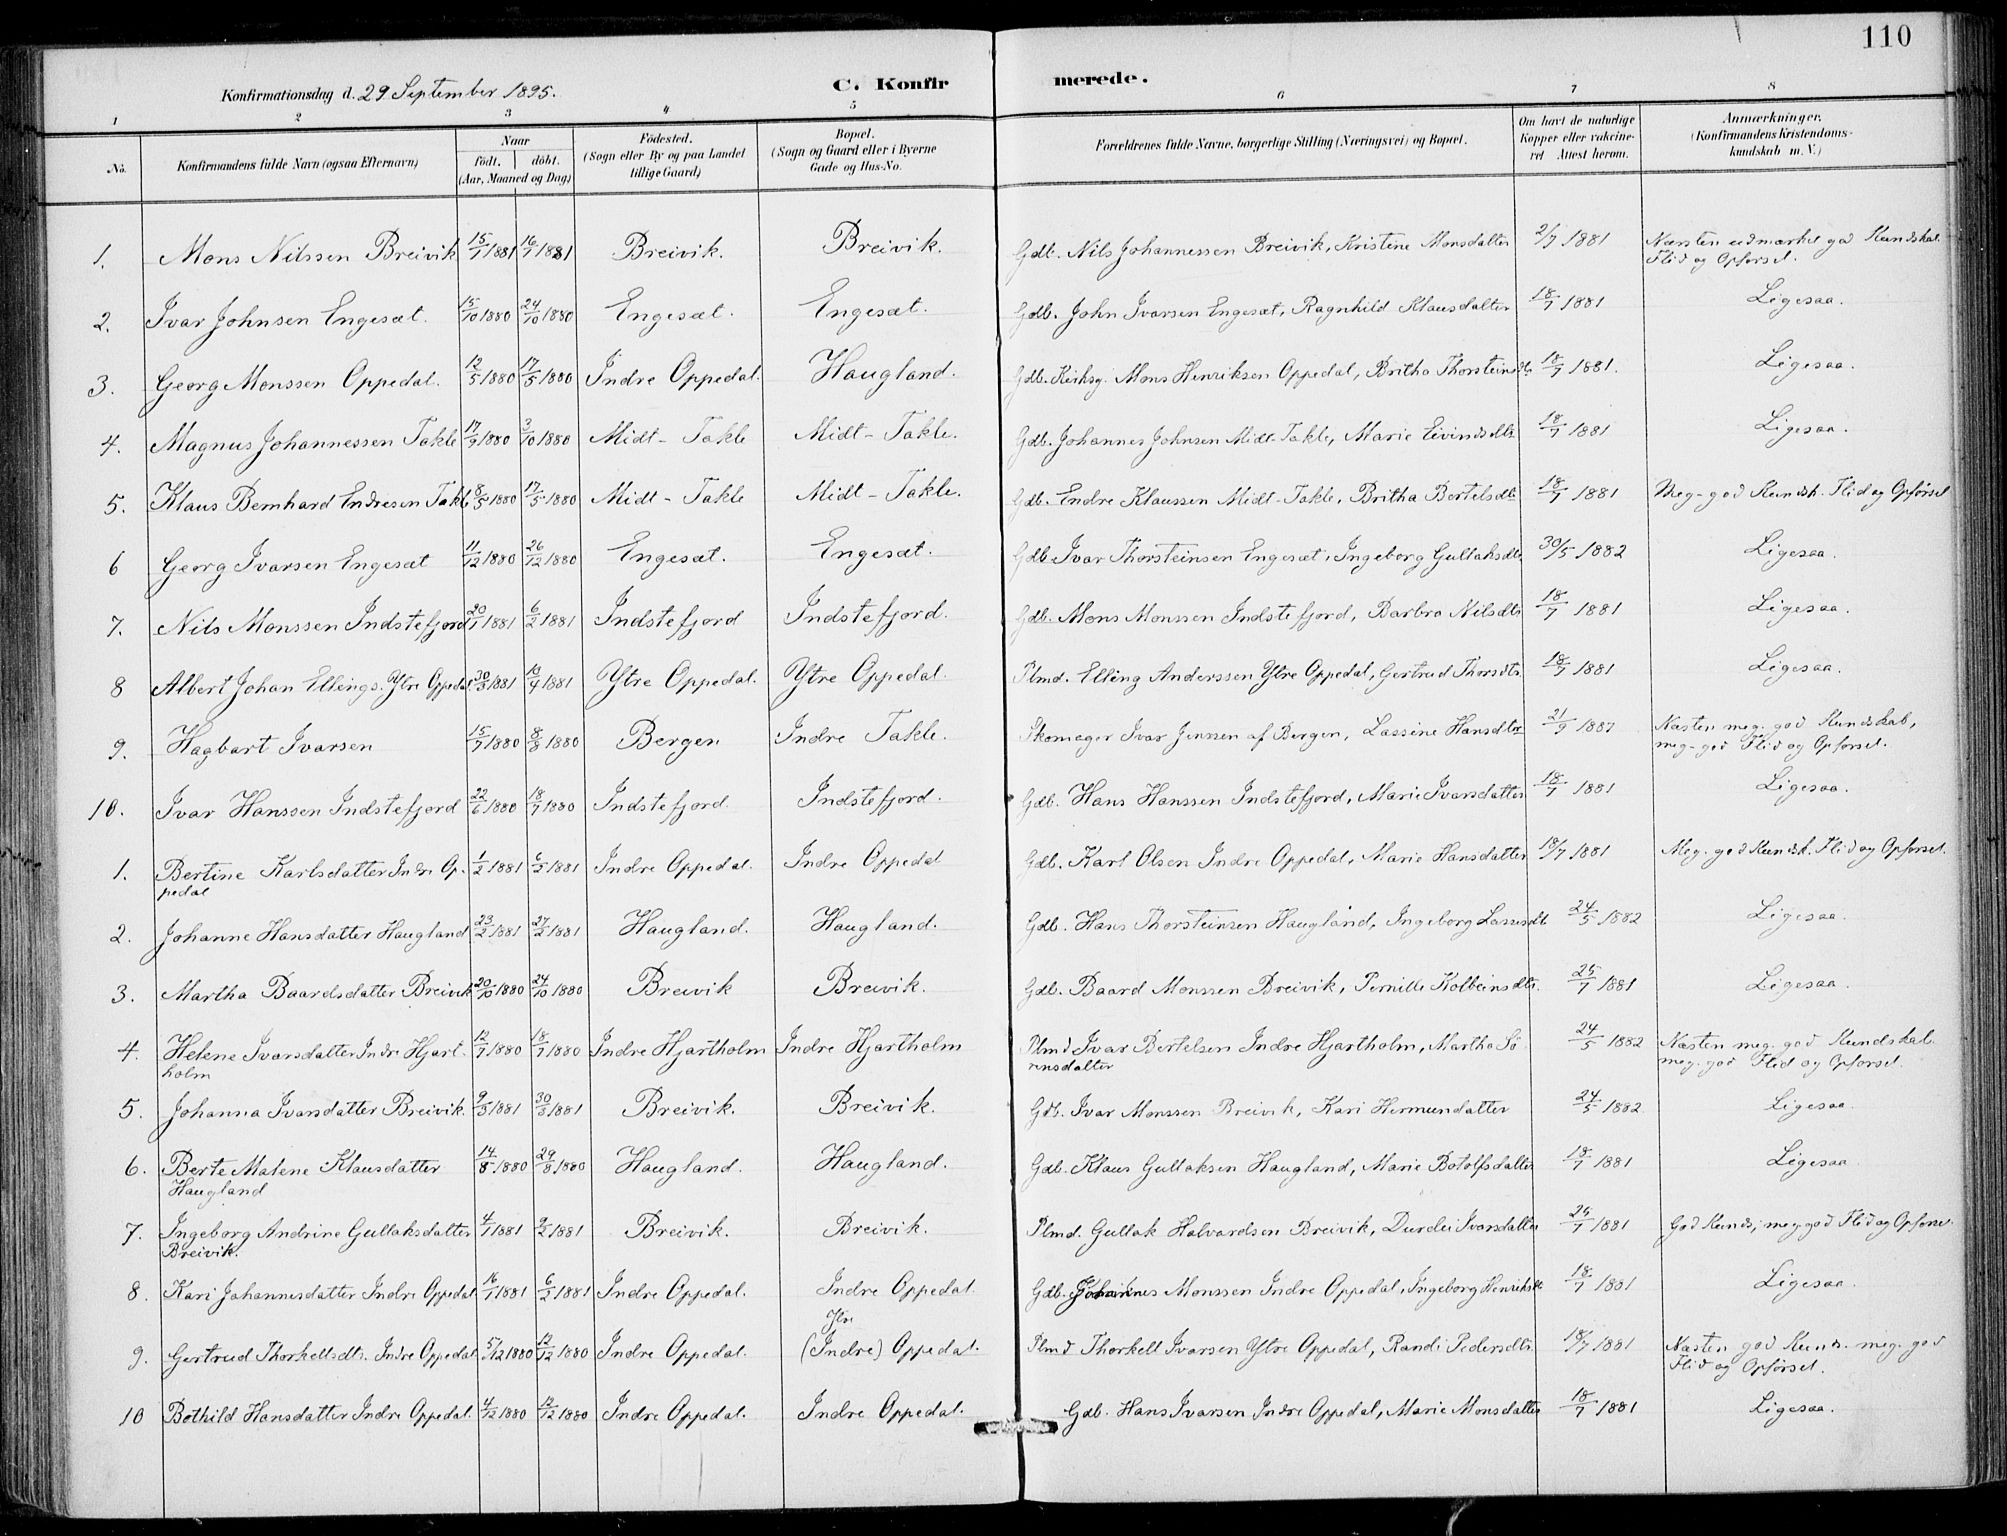 110
Konfirmationsdag d. 29 September 1895. C. Konfirmerede.
1 2 3 4 5 6 7 8
No. Konfirmandens fulde Navn (ogsaa Efternavn) Naar födt. döbt. (Aar, Maaned og Dag) Födested. (Sogn eller By og paa Landet tillige Gaard) Bopæl. (Sogn og Gaard eller i Byerne Gade og Hus-No. Forældrenes fulde Navne, borgerlige Stilling (Næringsvei) og Bopæl. Om havt de naturlige Kopper eller vakcineret Attest herom. Anmærkninger. (Konfirmandens Kristendomskundskab m. V.)
1. Mons Nilssen Breivik 15/7 1881 16/7 1881 Breivik. Breivik. Gdb. Nils Johannessen Breivik, Kristine Monsdatter 2/7 1881 Næsten udmærket god Kundskab.
Flid og Opførsel.
2. Ivar Johnsen Engesæt. 15/10 1880 24/10 1880 Engesæt. Engesæt. Gdb. John Ivarsen Engesæt, Ragnhild Klausdatter 18/7 1881 Ligesaa.
3. Georg Monssen Oppedal. 12/5 1880 17/5 1880 Indre Oppedal. Haugland. Gdb. Kirksg. Mons Henriksen Oppedal, Britha Thorsteinsdtr 18/7 1881. Ligesaa.
4. Magnus Johannessen Takle 17/9 1880 3/10 1880 Midt-Takle Midt-Takle. Gdb. Johannes Johnsen Midt-Takle, Marie Eivindsdtr 18/7 1881 Ligesaa.
5. Klaus Bernhard Endresen Takle 8/5 1880 17/5 1880 Midt-Takle Midt-Takle. Gdb. Endre Klaussen Midt-Takle, Britha Bertelsdtr 18/7 1881 Meg-god Kundsk. Flid og Opførsel
6 Georg Ivarsen Engesæt 11/12 1880 26/12 1880 Engesæt. Engesæt. Gdb Ivar Thorsteinsen Engesæt, Ingeborg Gullaksdtr 30/5 1882 Ligesaa.
7. Nils Monssen Indstefjord 20/1 1881 6/2 1881 Indstefjord Indstefjord. Gdb. Mons Monssen Indstefjord, Barbra Nilsdtr 18/7 1881 Ligesaa.
8 Albert Johan Ellings. Ytre Oppedal 30/3 1881 10/4 1881 Ytre Oppedal. Ytre Oppedal. Plmd. Elling Anderssen Ytre Oppedal, Gertrud Thorsdtr. 18/7 1881 Ligesaa.
9. Hagbart Ivarsen 15/7 1880 8/8 1880 Bergen Indre Takle. Skomager Ivar Jenssen af Bergen, Lassine Hansdtr 21/9 1887 Næsten meg. god Kundskab,
meg-god Flid og Opførsel.
10. Ivar Hanssen Indstefjord 22/6 1880 18/7 1880 Indstefjord. Indstefjord. Gdb. Hans Hanssen Indstefjord, Marie Ivarsdatter 18/7 1881 Ligesaa.
1. Bertine Karlsdatter Indre Op- 1/2 1881 6/2 1881 Indre Oppedal. Indre Oppedal Gdb. Karl Olsen Indre Oppedal, Marie Hansdatter 18/7 1881 Meg. god Kundsk. Flid og Opførsel.
pedal
2. Johanne Hansdatter Haugland 23/2 1881 27/2 1881 Haugland. Haugland. Gdb. Hans Thorsteinsen Haugland, Ingeborg Lassesdtr 24/5 1882 Ligesaa.
3. Martha Baardsdatter Breivik 20/10 1880 24/10 1880 Breivik Breivik. Gdb. Baard Monssen Breivik, Pernille Kolbeinsdtr. 25/7 1881 Ligesaa.
4. Helene Ivarsdatter Indre Hjart- 12/7 1880 18/7 1880 Indre Hjartholm Indre Hjartholm Plmd Ivar Bertelsen Indre Hjartholm, Martha Sö- 24/5 1882 Næsten meg. god Kundskab.
holm rensdatter meg. god Flid og Opførsel.
5. Johanna Ivarsdatter Breivik. 9/3 1881 30/3 1881 Breivik. Breivik. Gdb. Ivar Monssen Breivik, Kari Hermundatter 24/5 1882. Ligesaa.
6. Berte Malene Klausdatter 14/8 1880 29/8 1880 Haugland. Haugland. Gdb. Klaus Gullaksen Haugland, Marie Botolfsdatter 18/7 1881 Ligesaa
Haugland
7. Ingeborg Andrine Gullaksdatter 4/1 1881 1881 Breivik. Breivik. Plmd. Gullak Halvardsen Breivik, Durdei Ivarsdatter 25/7 1881 God Kunds, meg god Flid og Opførsel.
Breivik.
8. Kari Johannesdatter Indre Oppedal 16/1 1881 6/2 1881 Indre Oppedal. Indre Oppedal. Gdb. Johannes Monssen Indre Oppedal, Ingeborg Henriksdtr 18/7 1881 Ligesaa.
Ytre
9. Gertrud Thorkellsdtr. Indre Oppedal 5/12 1880 12/12 1880 Indre Oppedal. (Indre) Oppedal. Plmd Thorkell Ivarsen Ytre Oppedal, Randi Pedersdtr. 18/7 1881 Næsten god Kunds. meg. god
Flid og Opførsel.
10 Bothild Hansdatter Indre Oppedal. 4/12 1880 12/12 1880 Indre Oppedal. Indre Oppedal. Gdb. Hans Ivarsen Indre Oppedal, Marie Monsdatter 18/7 1881 Ligesaa.